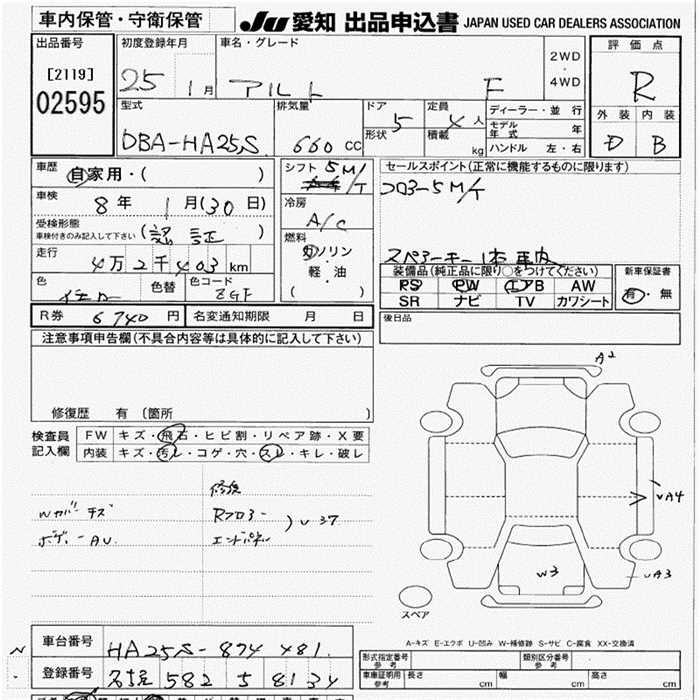 車内保管・守衛保管
JU 愛知 出品申込書 JAPAN USED CAR DEALERS ASSOCIATION
出品番号
[2119]
02595
初度登録年月
25 1月
車名・グレード
アルト F
2WD
・
4WD
評価点
R
外装 内装
D B
型式
DBA-HA25S
排気量
660 cc
ドア
5
形状
定員
4人
積載 kg
ディーラー・並行
モデル年式 年
ハンドル 左・右
車歴
自家用・( )
車検
8年 1月(30日)
受検形態
車検付きのみ記入して下さい (認 証)
走行
4万2千403km
色
色替
色コード
ZGF
シフト 5M/T
冷房
A/C
燃料
ガソリン
軽・油
( )
セールスポイント(正常に機能するものに限ります)
フロアー5M/T
スペアーキー1本車内
装備品(純正品に限り○をつけてください)
PS PW エアB AW
SR ナビ TV カワシート
新車保証書
有・無
R券 6740円 名変通知期限 月 日
後日品
注意事項申告欄(不具合内容等は具体的に記入して下さい)
修復歴 有 (箇所 )
検査員
記入欄
FW キズ・飛石・ヒビ割・リペア跡・X要
内装 キズ・汚レ・コゲ・穴・スレ・キレ・破レ
修復
Wカバーキズ
ボディーAU
Rフロアー
エンドパネル
)U37
A2
UA4
UA3
W3
スペア
A-キズ E-エクボ U-凹み W-補修跡 S-サビ C-腐食 XX-交換済
車台番号 HA25S-874481
登録番号 582 8134
形式指定番号
参考
類別区分番号
参考
車庫証明用
参考
長さ cm 幅 cm 高さ cm